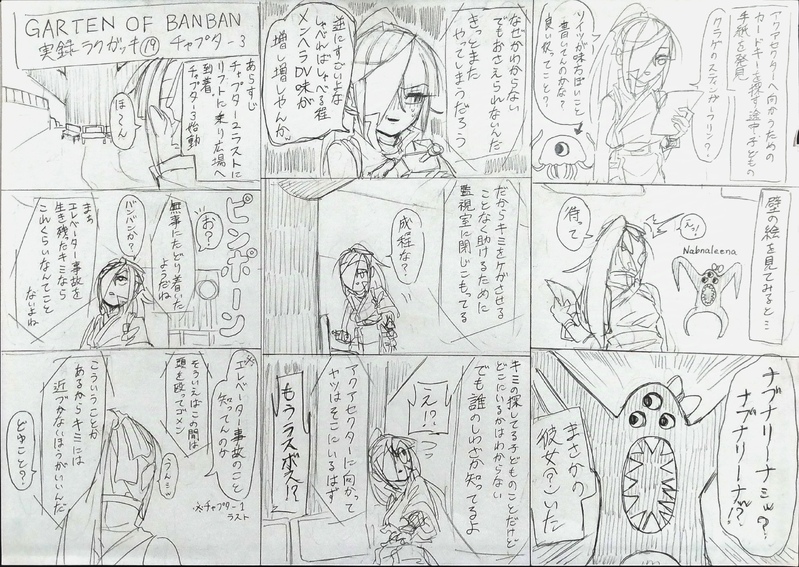 GARTEN OF BANBAN
実録ラクガッキ⑲ チャプター3
あらすじ
チャプター2ラストに
リフトに乗り広場へ
到着
チャプター3始動
ほーん
ピンポーン
お?
無事にたどり着いた
ようだね
バンバンか?
まぁ
エレベーター事故を
生き残ったキミなら
これくらいなんてこと
ないよね
エレベーター事故のこと
知ってんのか
※チャプター1
ラスト
そういえばこの間は
頭を殴ってゴメン
うんうん
こういうことが
あるからキミには
近づかないほうがいいんだ
どゆこと?
なぜかわからない
でもおさえられないんだ
きっとまた
やってしまうだろう
逆にすごいよな
しゃべればしゃべる程
メンヘラDV味が
増し増しやんかw
だからキミをケガさせる
ことなく助けるために
監視室に閉じこもってる
成程な?
キミの探してる子どものことだけど
どこにいるかはわからない
でも誰のしわざか知ってるよ
え!?
アクアセクターに向かって
ヤツはそこにいるはず
もうラスボス!?
アクアセクターへ向かうための
カードキーを探す途中子どもの
手紙を発見
クラゲのスティンガーフリン?
ツイツが味方ぽいこと
書いてんのかな?
良い奴ってこと?
壁の絵を見てみると…
Nabnaleena
待って
ナブナリーナミッ?
ナブナリーナッ!?
まさかの
彼女?いた